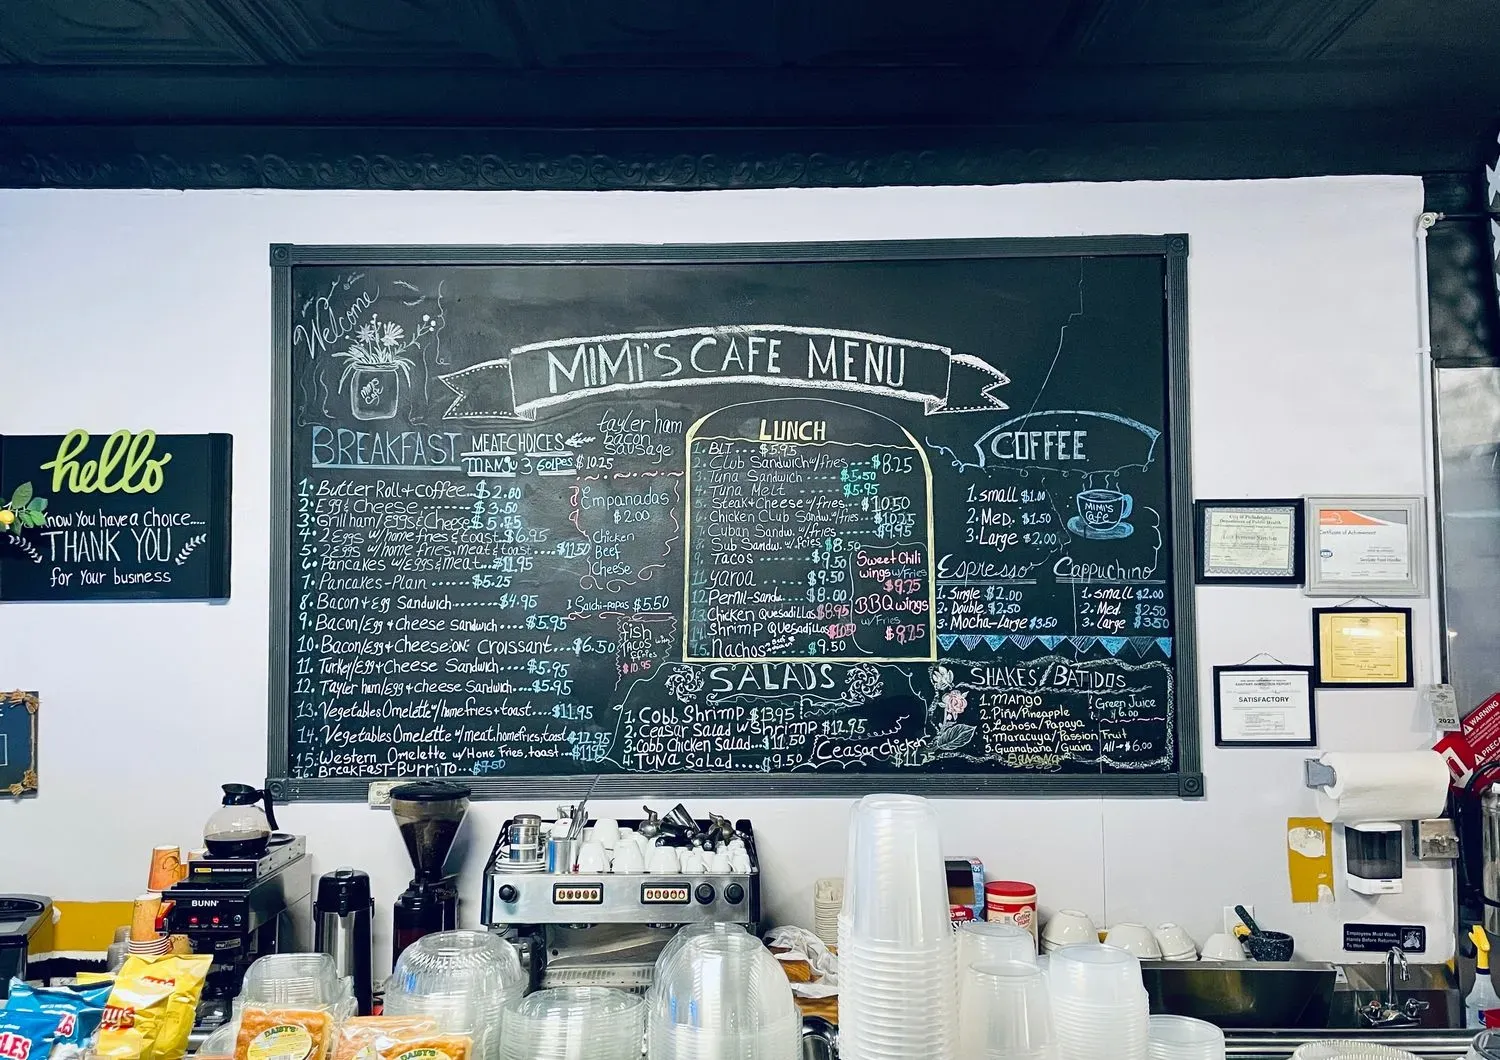 Welcome
Mimi's
Cafe
MIMI'S CAFE MENU
BREAKFAST
MEAT CHOICES
tayler ham
bacon
sausage
MANGU 3 GOLPES $10.25
1. Butter Roll + coffee... $2.00
2. Egg & Cheese.... $3.50
3. Grill ham/Eggs & Cheese $5.75
4. 2 Eggs w/home fries & toast $6.95
5. 2 eggs w/home fries, meat & toast.... $11.50
6. Pancakes w/Eggs & Meat... $11.95
7. Pancakes-Plain.... $5.25
8. Bacon & Egg Sandwich....... $4.95
9. Bacon/Egg & cheese Sandwich..... $5.95
10. Bacon/egg & Cheese ON: Croissant.... $6.50
11. Turkey/Egg & Cheese Sandwich.... $5.95
12. Tayler ham/Egg & cheese Sandwich.... $5.95
13. Vegetables Omelette w/homefries & toast.... $11.95
14. Vegetables Omelette w/meat, homefries, toast $12.95
15. Western Omelette w/Home Fries, toast.... $11.95
16. Breakfast-Burrito... $7.50
Empanadas
$2.00
Chicken
Beef
Cheese
Salchi-papas $5.50
fish
Tacos w/
ffries
$10.95
LUNCH
1. BLT.... $5.95
2. Club Sandwich w/fries.... $8.25
3. Tuna Sandwich ...... $5.50
4. Tuna Melt ...... $5.95
5. Steak & Cheese w/fries... $10.50
6. Chicken Club Sandw. w/fries... $10.25
7. Cuban Sandw. w/fries.... $9.95
8. Sub Sandw. w/fries $8.50
9. Tacos ..... $9.50
11. Yaroa ...... $9.50
12. Pernil-Sandw.... $8.00
13. Chicken Quesadillas $8.95
14. Shrimp Quesadillas $10.50
15. Nachos $9.50
Sweet Chili
wings w/Fries
$9.75
BBQ wings
w/Fries
$9.75
SALADS
1. Cobb Shrimp $13.95
2. Ceasar Salad w/Shrimp $12.95
3. Cobb Chicken Salad.... $11.50
4. Tuna Salad.... $9.50
Ceasar Chicken
COFFEE
1. small $1.00
2. Med. $1.50
3. Large $2.00
MIMI'S
Cafe
Espresso
1. Single $2.00
2. Double $2.50
3. Mocha-Large $3.50
Cappuchino
1. small $2.00
2. Med. $2.50
3. Large $3.50
SHAKES/BATIDOS
1. Mango
2. Piña/Pineapple
3. Lechosa/Papaya
4. Maracuya/Passion Fruit
5. Guanabana/Guava All → $6.00
Banana
Green Juice
$6.00
hello
know You have a choice.....
THANK YOU
for Your business
City of Philadelphia
Department of Public Health
Certificate of Achievement
SATISFACTORY
2023
WARNING
Employees Must Wash
Hands Before Returning
To Work
BUNN
DAISY'S
DAISY'S